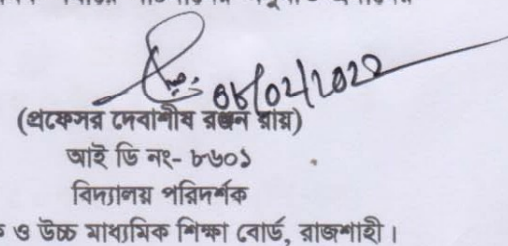 ০৮/০২/২০২২
(প্রফেসর দেবাশীষ রঞ্জন রায়)
আই ডি নং- ৮৬০১
বিদ্যালয় পরিদর্শক
ও উচ্চ মাধ্যমিক শিক্ষা বোর্ড, রাজশাহী।